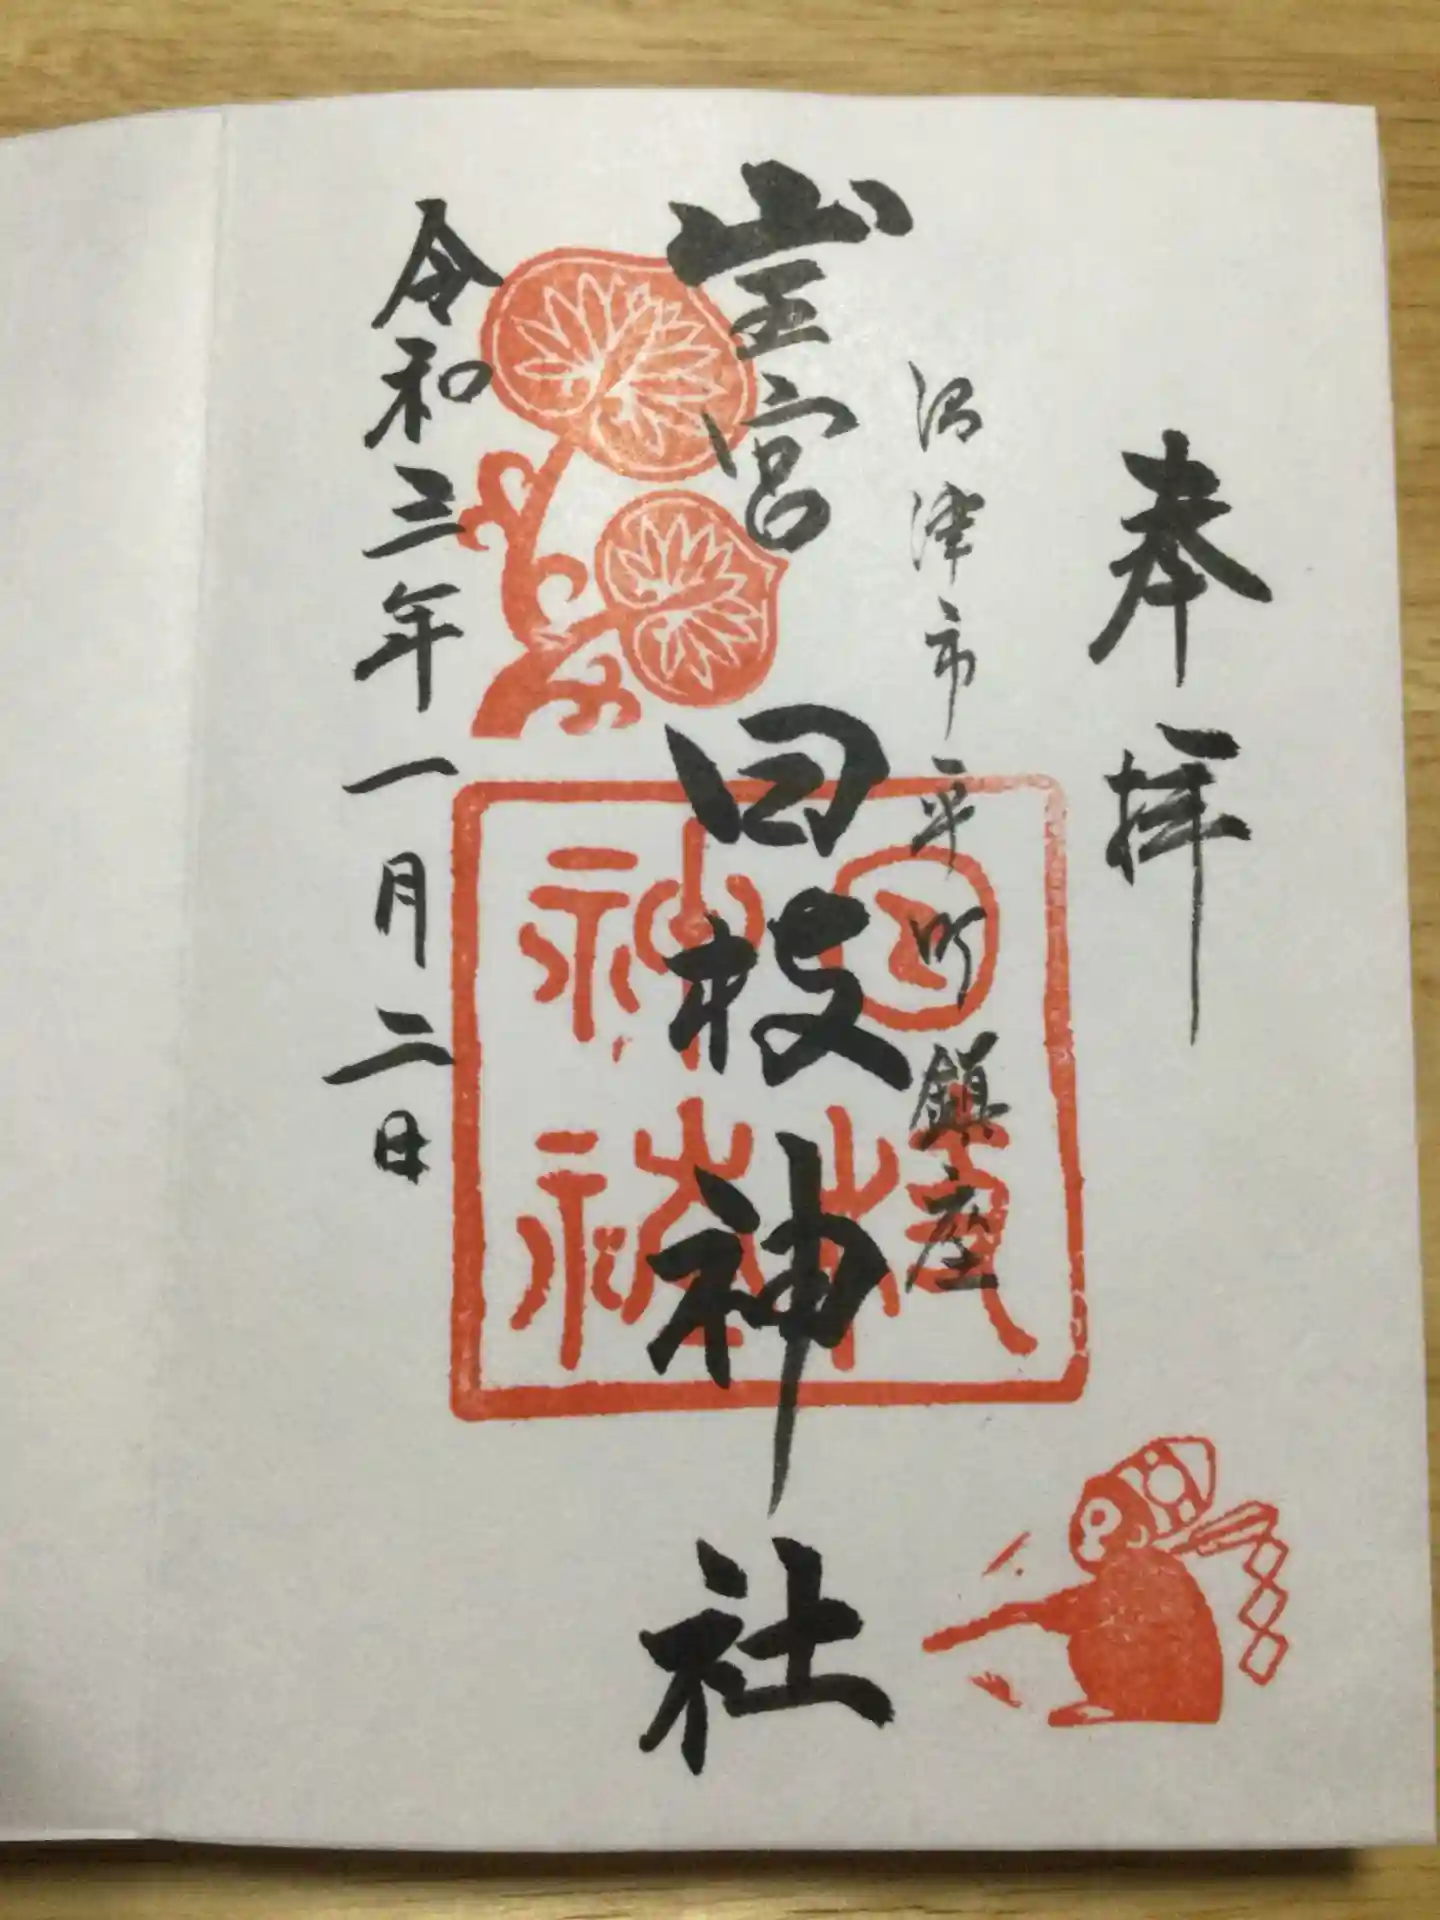 奉拝
沼津市平町鎮座
山王宮
日枝神社
日枝
神社
令和三年一月二日